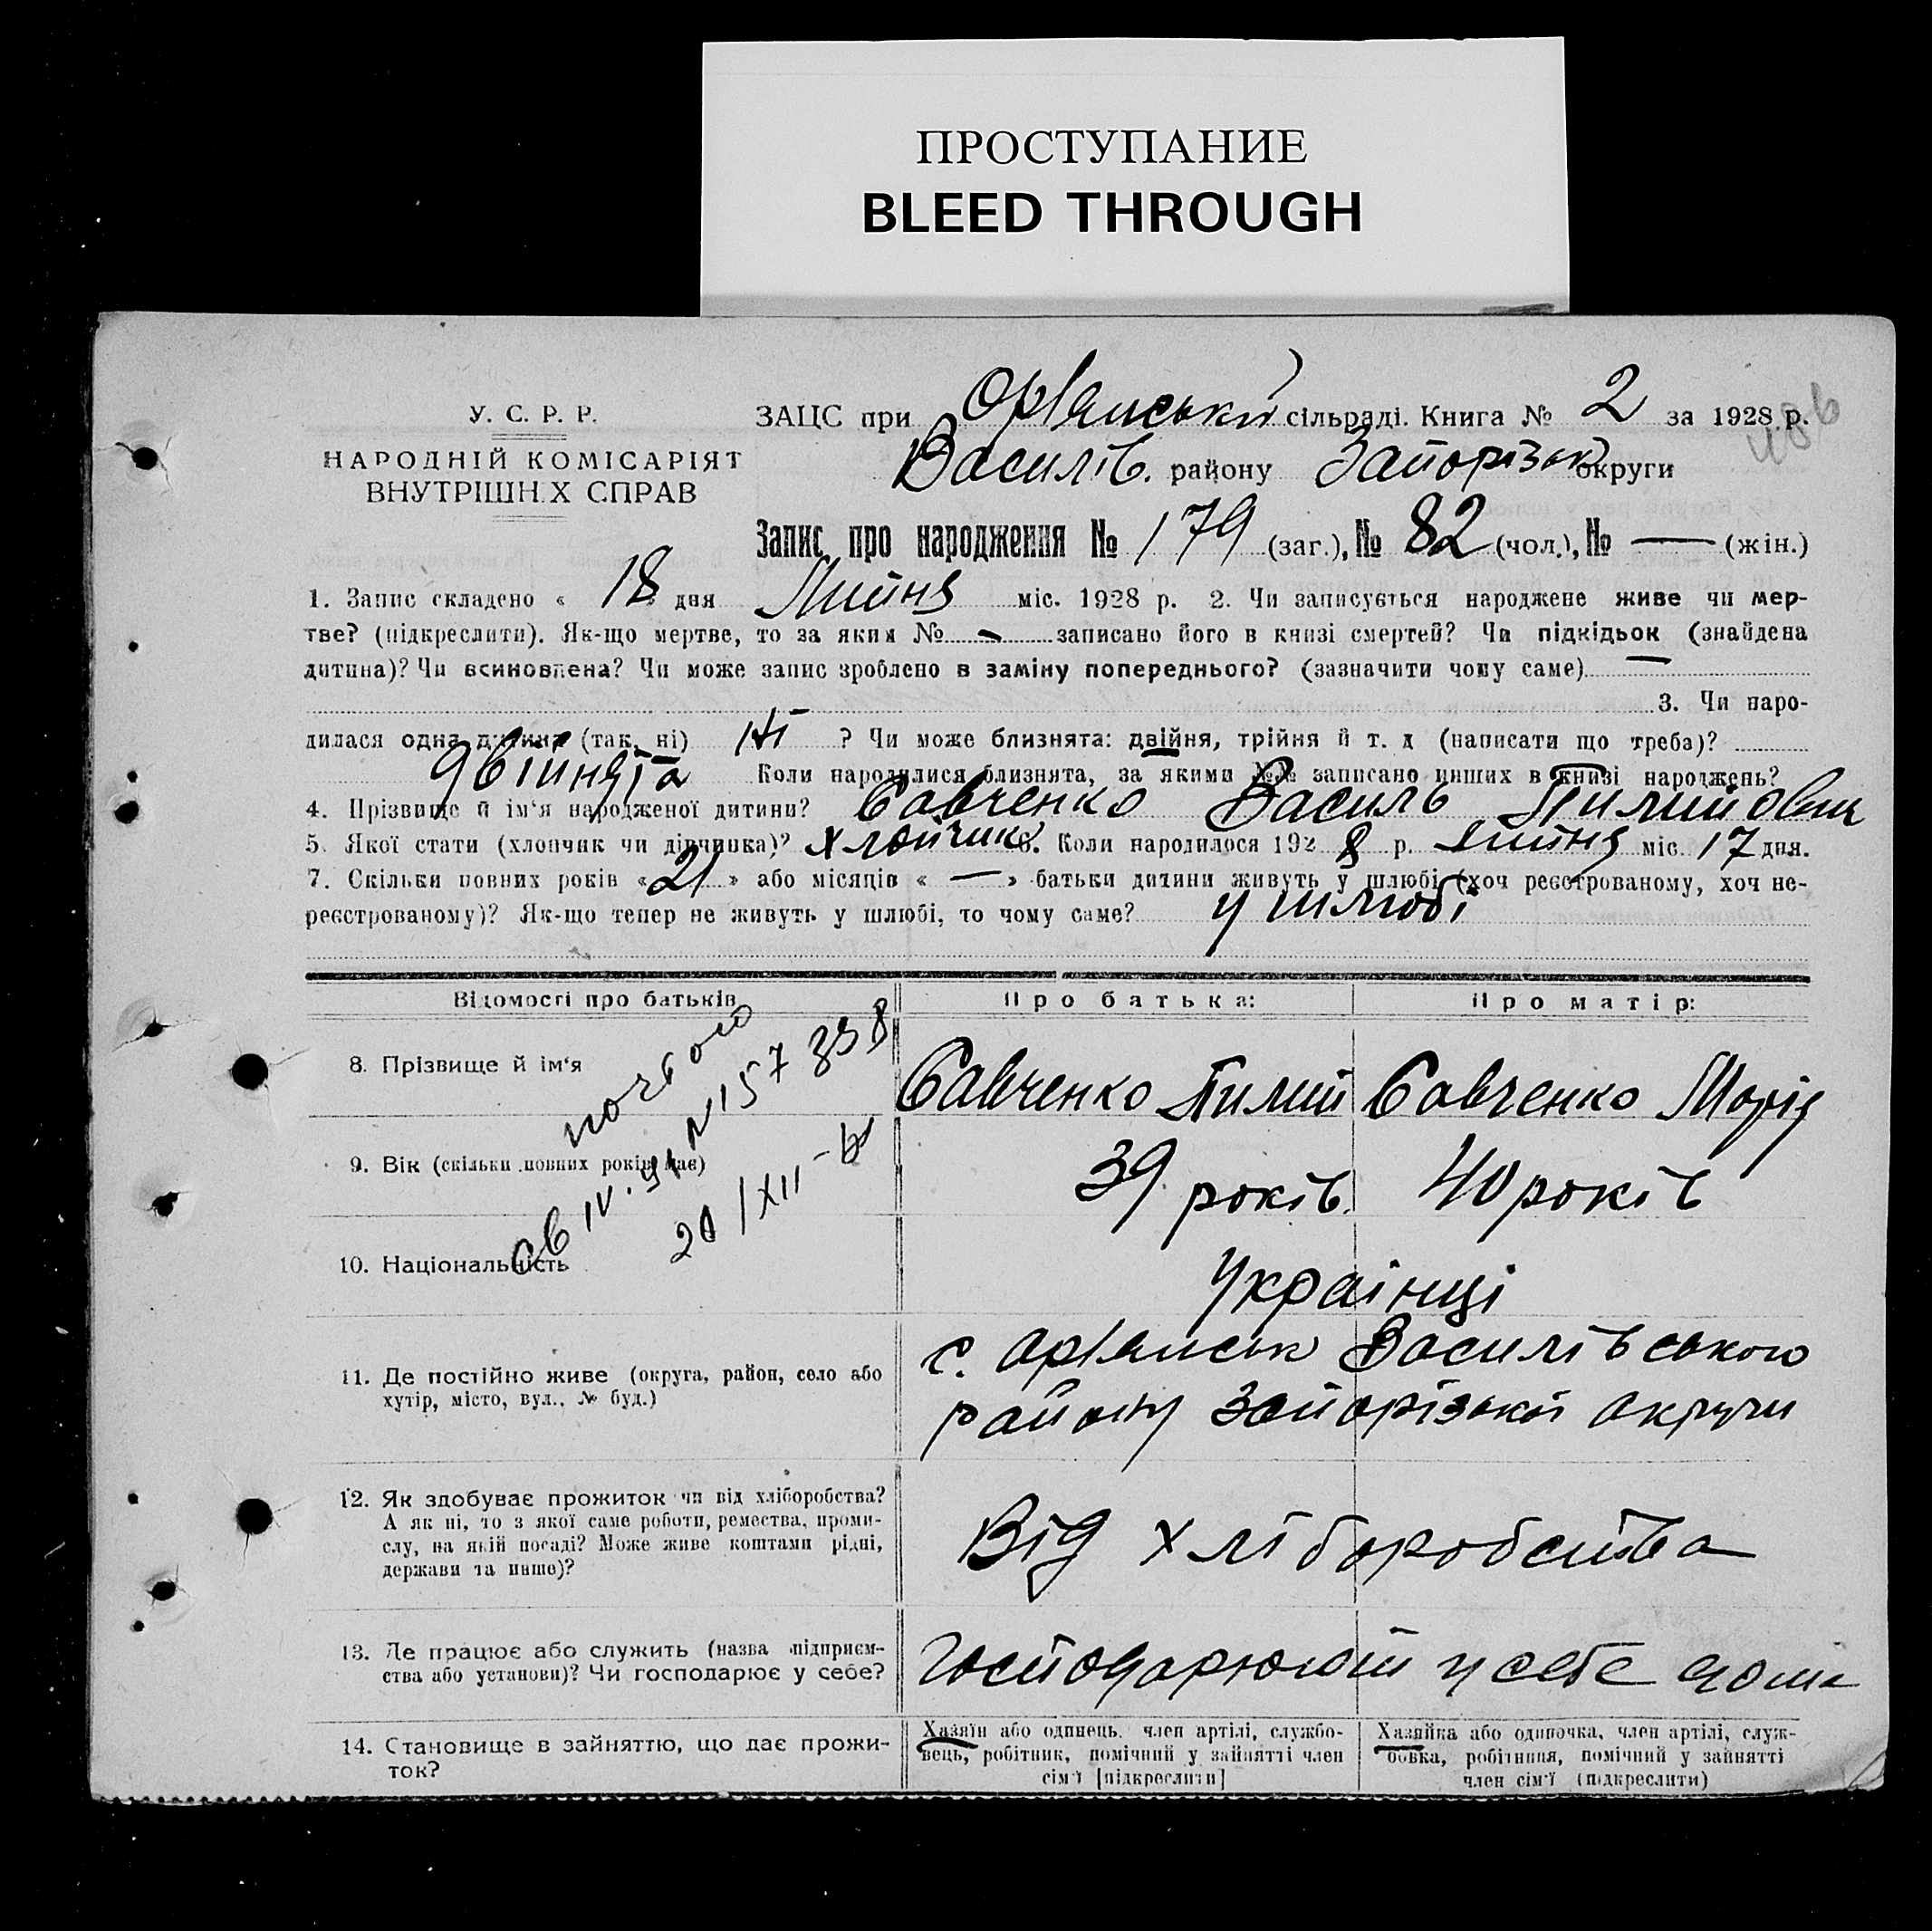 ПРОСТУПАНИЕ
BLEED THROUGH
У. С. Р. Р.
НАРОДНІЙ КОМІСАРІЯТ
ВНУТРІШНІХ СПРАВ
ЗАЦС при Орlянській сільраді. Книга № 2 за 1928 р.
Василів. району Запорізьк округи
Запис про народження № 179 (заг.), № 82 (чол.), № — (жін.)
1. Запис складено « 18 » дня Липня міс. 1928 р. 2. Чи записується народжене живе чи мер-
тве? (підкреслити). Як-що мертве, то за яким № - записано його в книзі смертей? Чи підкідьок (знайдена
дитина)? Чи всиновлена? Чи може запис зроблено в заміну попереднього? (зазначити чому саме) —
3. Чи наро-
дилася одна дитина (так, ні) Ні ? Чи може близнята: двійня, трійня й т. д (написати що треба)?
двійнята Коли народилися близнята, за якими №№ записано инших в книзі народжень?
4. Прізвище й ім'я народженої дитини? Савченко Василь Пилипович
5. Якої стати (хлопчик чи дівчинка)? хлопчик 6. Коли народилося 1928 р. липня міс. 17 дня.
7. Скільки повних років « 21 » або місяців « — » батьки дитини живуть у шлюбі (хоч реєстрованому, хоч не-
реєстрованому)? Як-що тепер не живуть у шлюбі, то чому саме? у шлюбі
Відомості про батьків
Про батька:
Про матір:
8. Прізвище й ім'я
Савченко Пилип
Савченко Марія
9. Вік (скільки повних років має)
39 років
40 років
10. Національність
Українці
11. Де постійно живе (округа, район, село або
хутір, місто, вул., № буд.)
с. Орlянськ Василівського
району Запорізької округи
12. Як здобуває прожиток чи від хліборобства?
А як ні, то з якої саме роботи, ремества, проми-
слу, на якій посаді? Може живе коштами рідні,
держави та инше)?
Від хліборобства
13. Де працює або служить (назва підприєм-
ства або установи)? Чи господарює у себе?
Господарюють у себе дома
14. Становище в зайняттю, що дає прожи-
ток?
Хазяїн або одинець, член артілі, службо-
вець, робітник, помічний у зайнятті член
сім'ї [підкреслити]
Хазяйка або одиночка, член артілі, служ-
бовка, робітниця, помічний у зайнятті
член сім'ї (підкреслити)